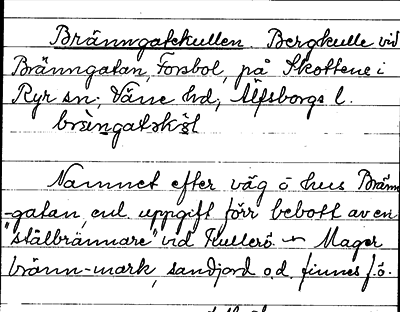 Bränngatekullen. Bergkulle vid
Bränngatan, Forsbol, på Skottene i
Ryr sn, Väne hd, Älfsborgs l.
brä̀ngatəkə̀l
Namnet efter väg o hus Bränn
-gatan, enl. uppgift förr bebott av en
"stålbrännare" vid Hullerö. Mager
bränn-mark, sandjord o.d. finnes f.ö.